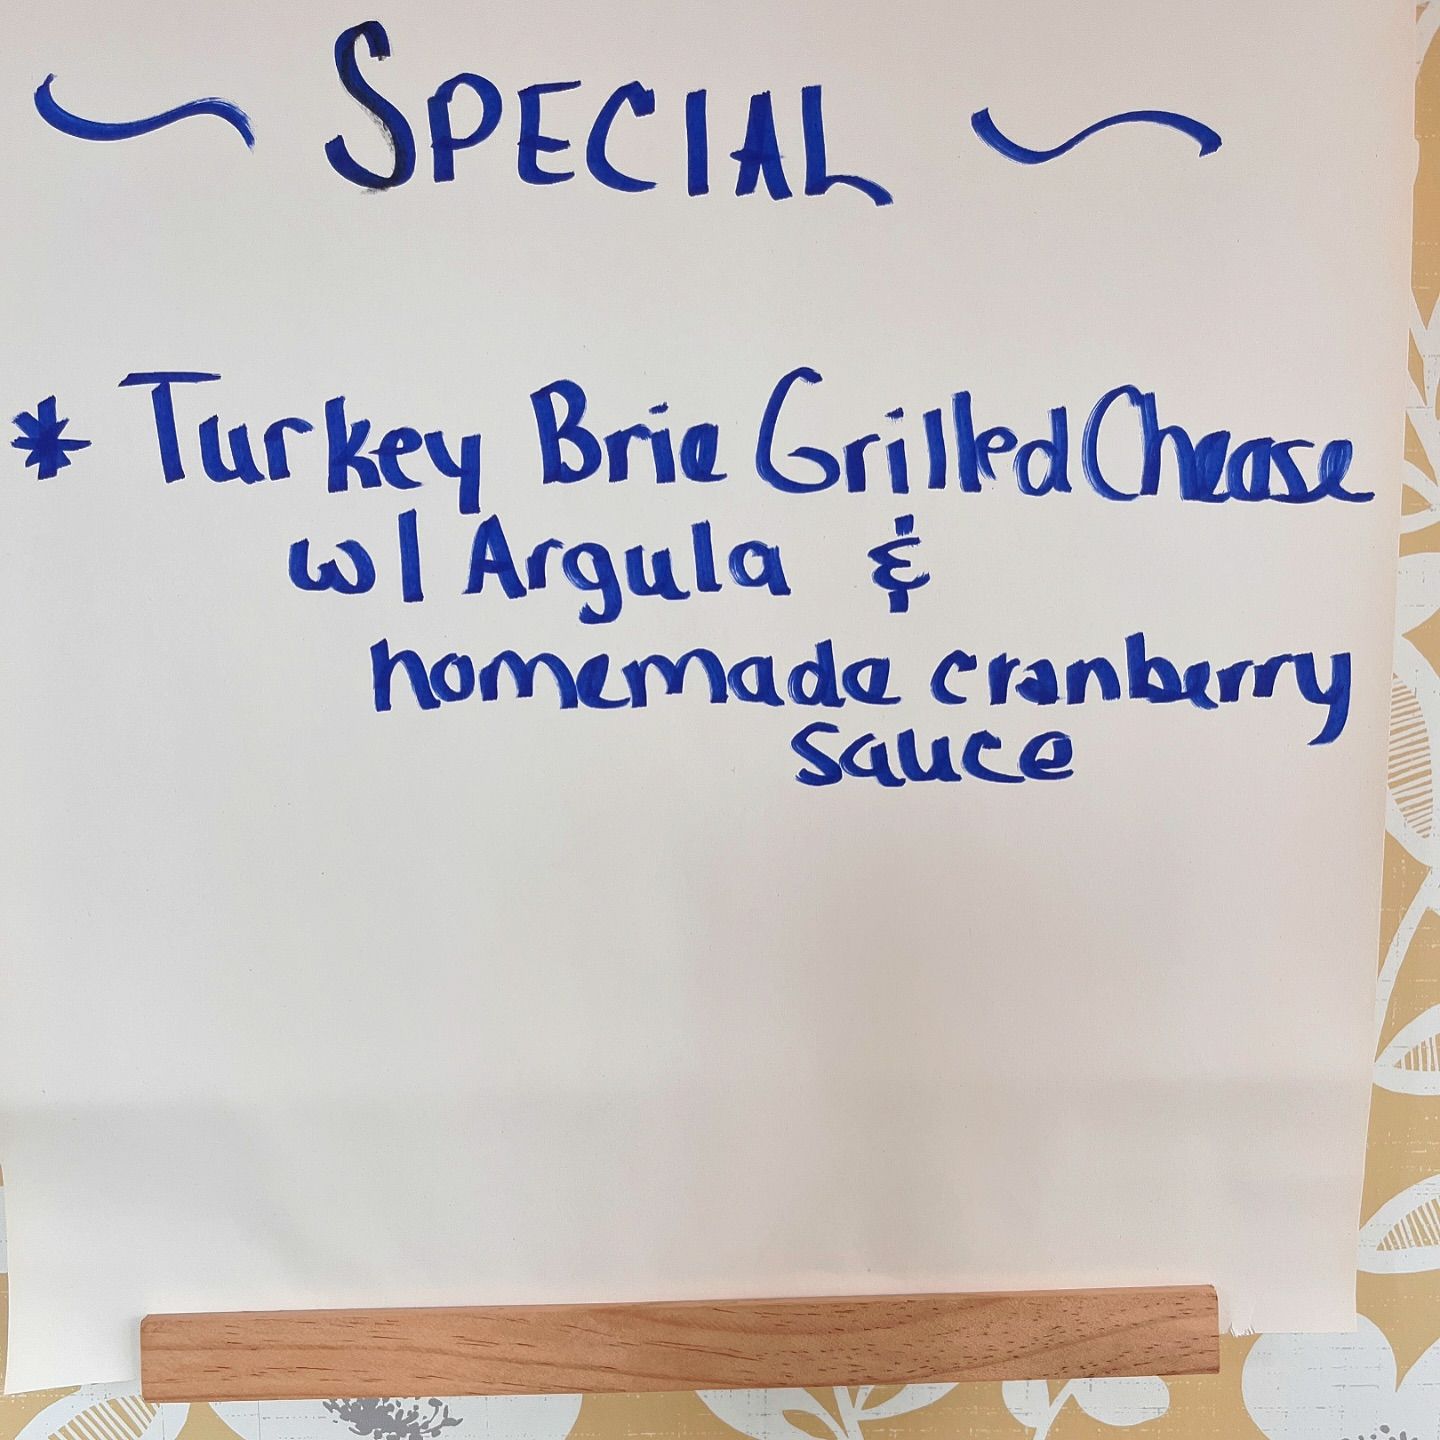 ~ SPECIAL ~
* Turkey Brie Grilled Cheese
w/ Argula &
homemade cranberry
sauce